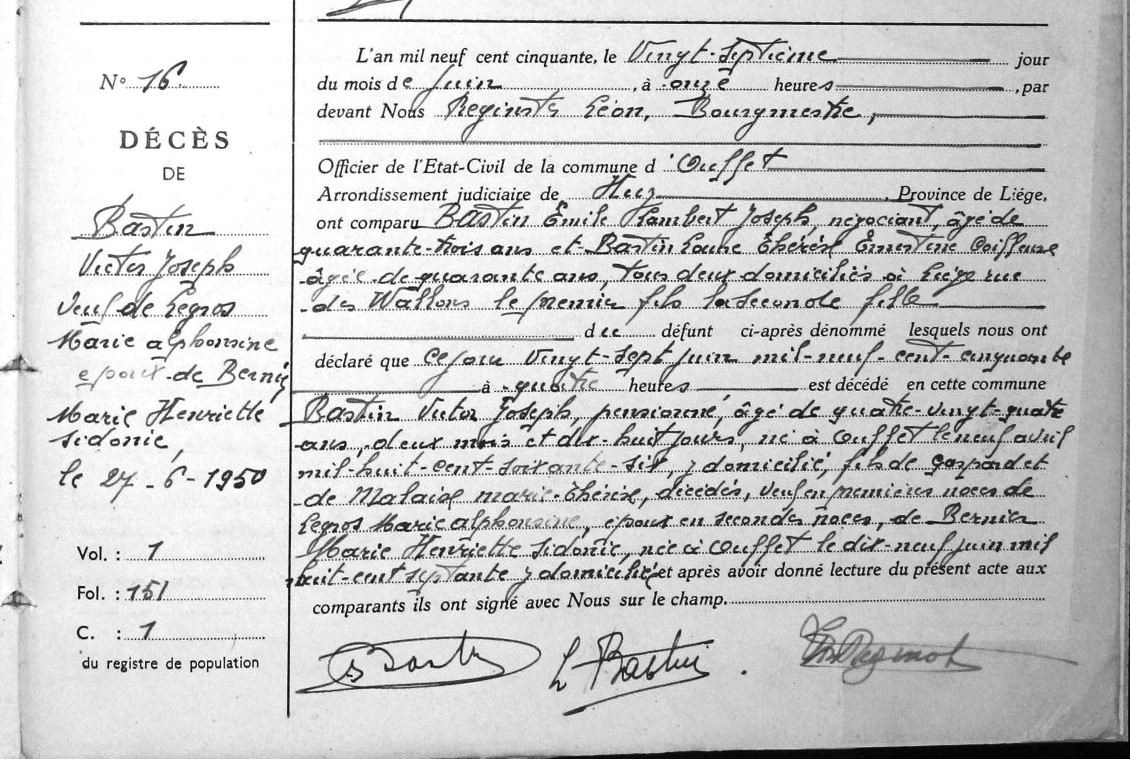 N° 16
DÉCÈS
DE
Bastin
Victor Joseph
Veuf de Legros
Marie Alphonsine
époux de Bernier
Marie Henriette
Sidonie,
le 27-6-1950
Vol. : 1
Fol. : 151
C. : 1
du registre de population
L'an mil neuf cent cinquante, le Vingt-Septième jour
du mois de Juin, à onze heures, par
devant Nous Léon, Bourgmestre,
Officier de l'Etat-Civil de la commune d'Ouffet
Arrondissement judiciaire de Huy, Province de Liége,
ont comparu Bastin Émile Lambert Joseph, négociant, âgé de
quarante-trois ans et Bastin Thérèse Ernestine Coiffeuse
âgée de quarante ans, tous deux domiciliés à Liège rue
des Wallons le premier fils la seconde fille
du défunt ci-après dénommé lesquels nous ont
déclaré que ce jour Vingt-Sept Juin mil-neuf-cent-cinquante
à quatre heures est décédé en cette commune
Bastin Victor Joseph, pensionné, âgé de quatre-vingt-quatre
ans, deux mois et dix-huit jours, né à Ouffet le neuf avril
mil-huit-cent-soixante-six, y domicilié, fils de Gaspard et
de Malaise Marie-Thérèse, décédés, veuf en premières noces de
Legros Marie Alphonsine, époux en secondes noces, de Bernier
Marie Henriette Sidonie, née à Ouffet le dix-neuf juin mil
huit-cent septante y domiciliée et après avoir donné lecture du présent acte aux
comparants ils ont signé avec Nous sur le champ.
L Bastin